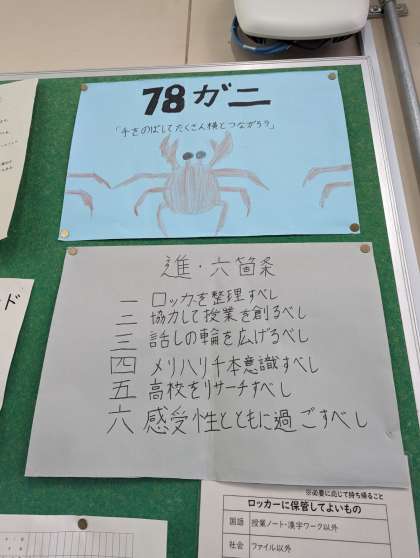 78ガニ
「手をのばしてたくさん横とつながろう」
進・六箇条
一 ロッカを整理すべし
二 協力して授業を創るべし
三 話しの輪を広げるべし
四 メリハリ千本意識すべし
五 高校をリサーチすべし
六 感受性とともに過ごすべし
ド
※必要に応じて持ち帰ること
ロッカーに保管してよいもの
国語 授業ノート・漢字ワーク以外
社会 ファイル以外